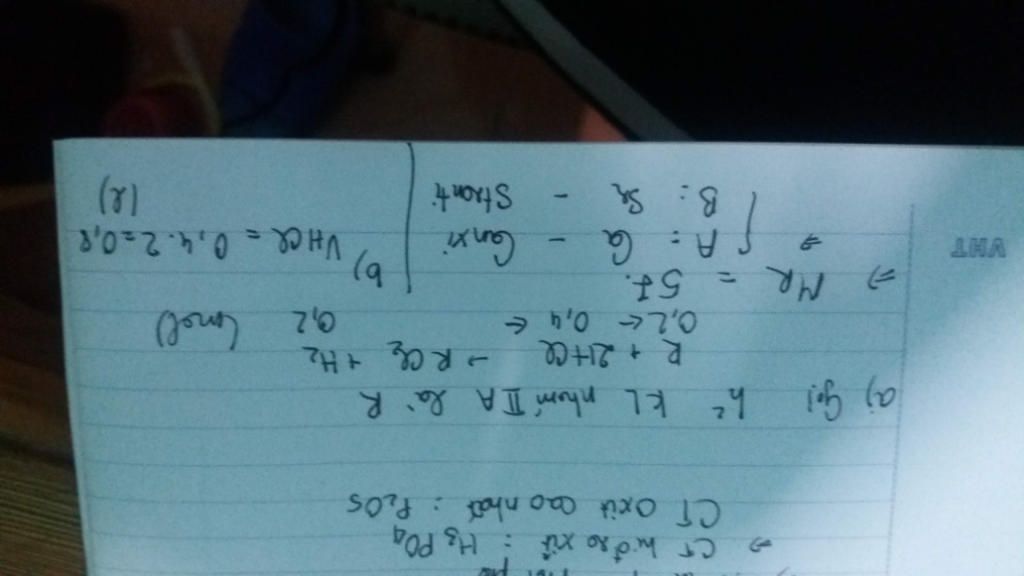 ⇒ CT hiđro xit : H3PO4
CT oxit cao nhất : P2O5
a) Gọi h² KL nhóm IIA là R
R + 2HCl → RCl2 + H2
0,2 ← 0,4 ← 0,2 (mol)
⇒ MR = 57.
⇒ { A : Ca - Canxi
B : Sr - Stronti
b) VHCl = 0,4 . 2 = 0,8 (l)
VHT